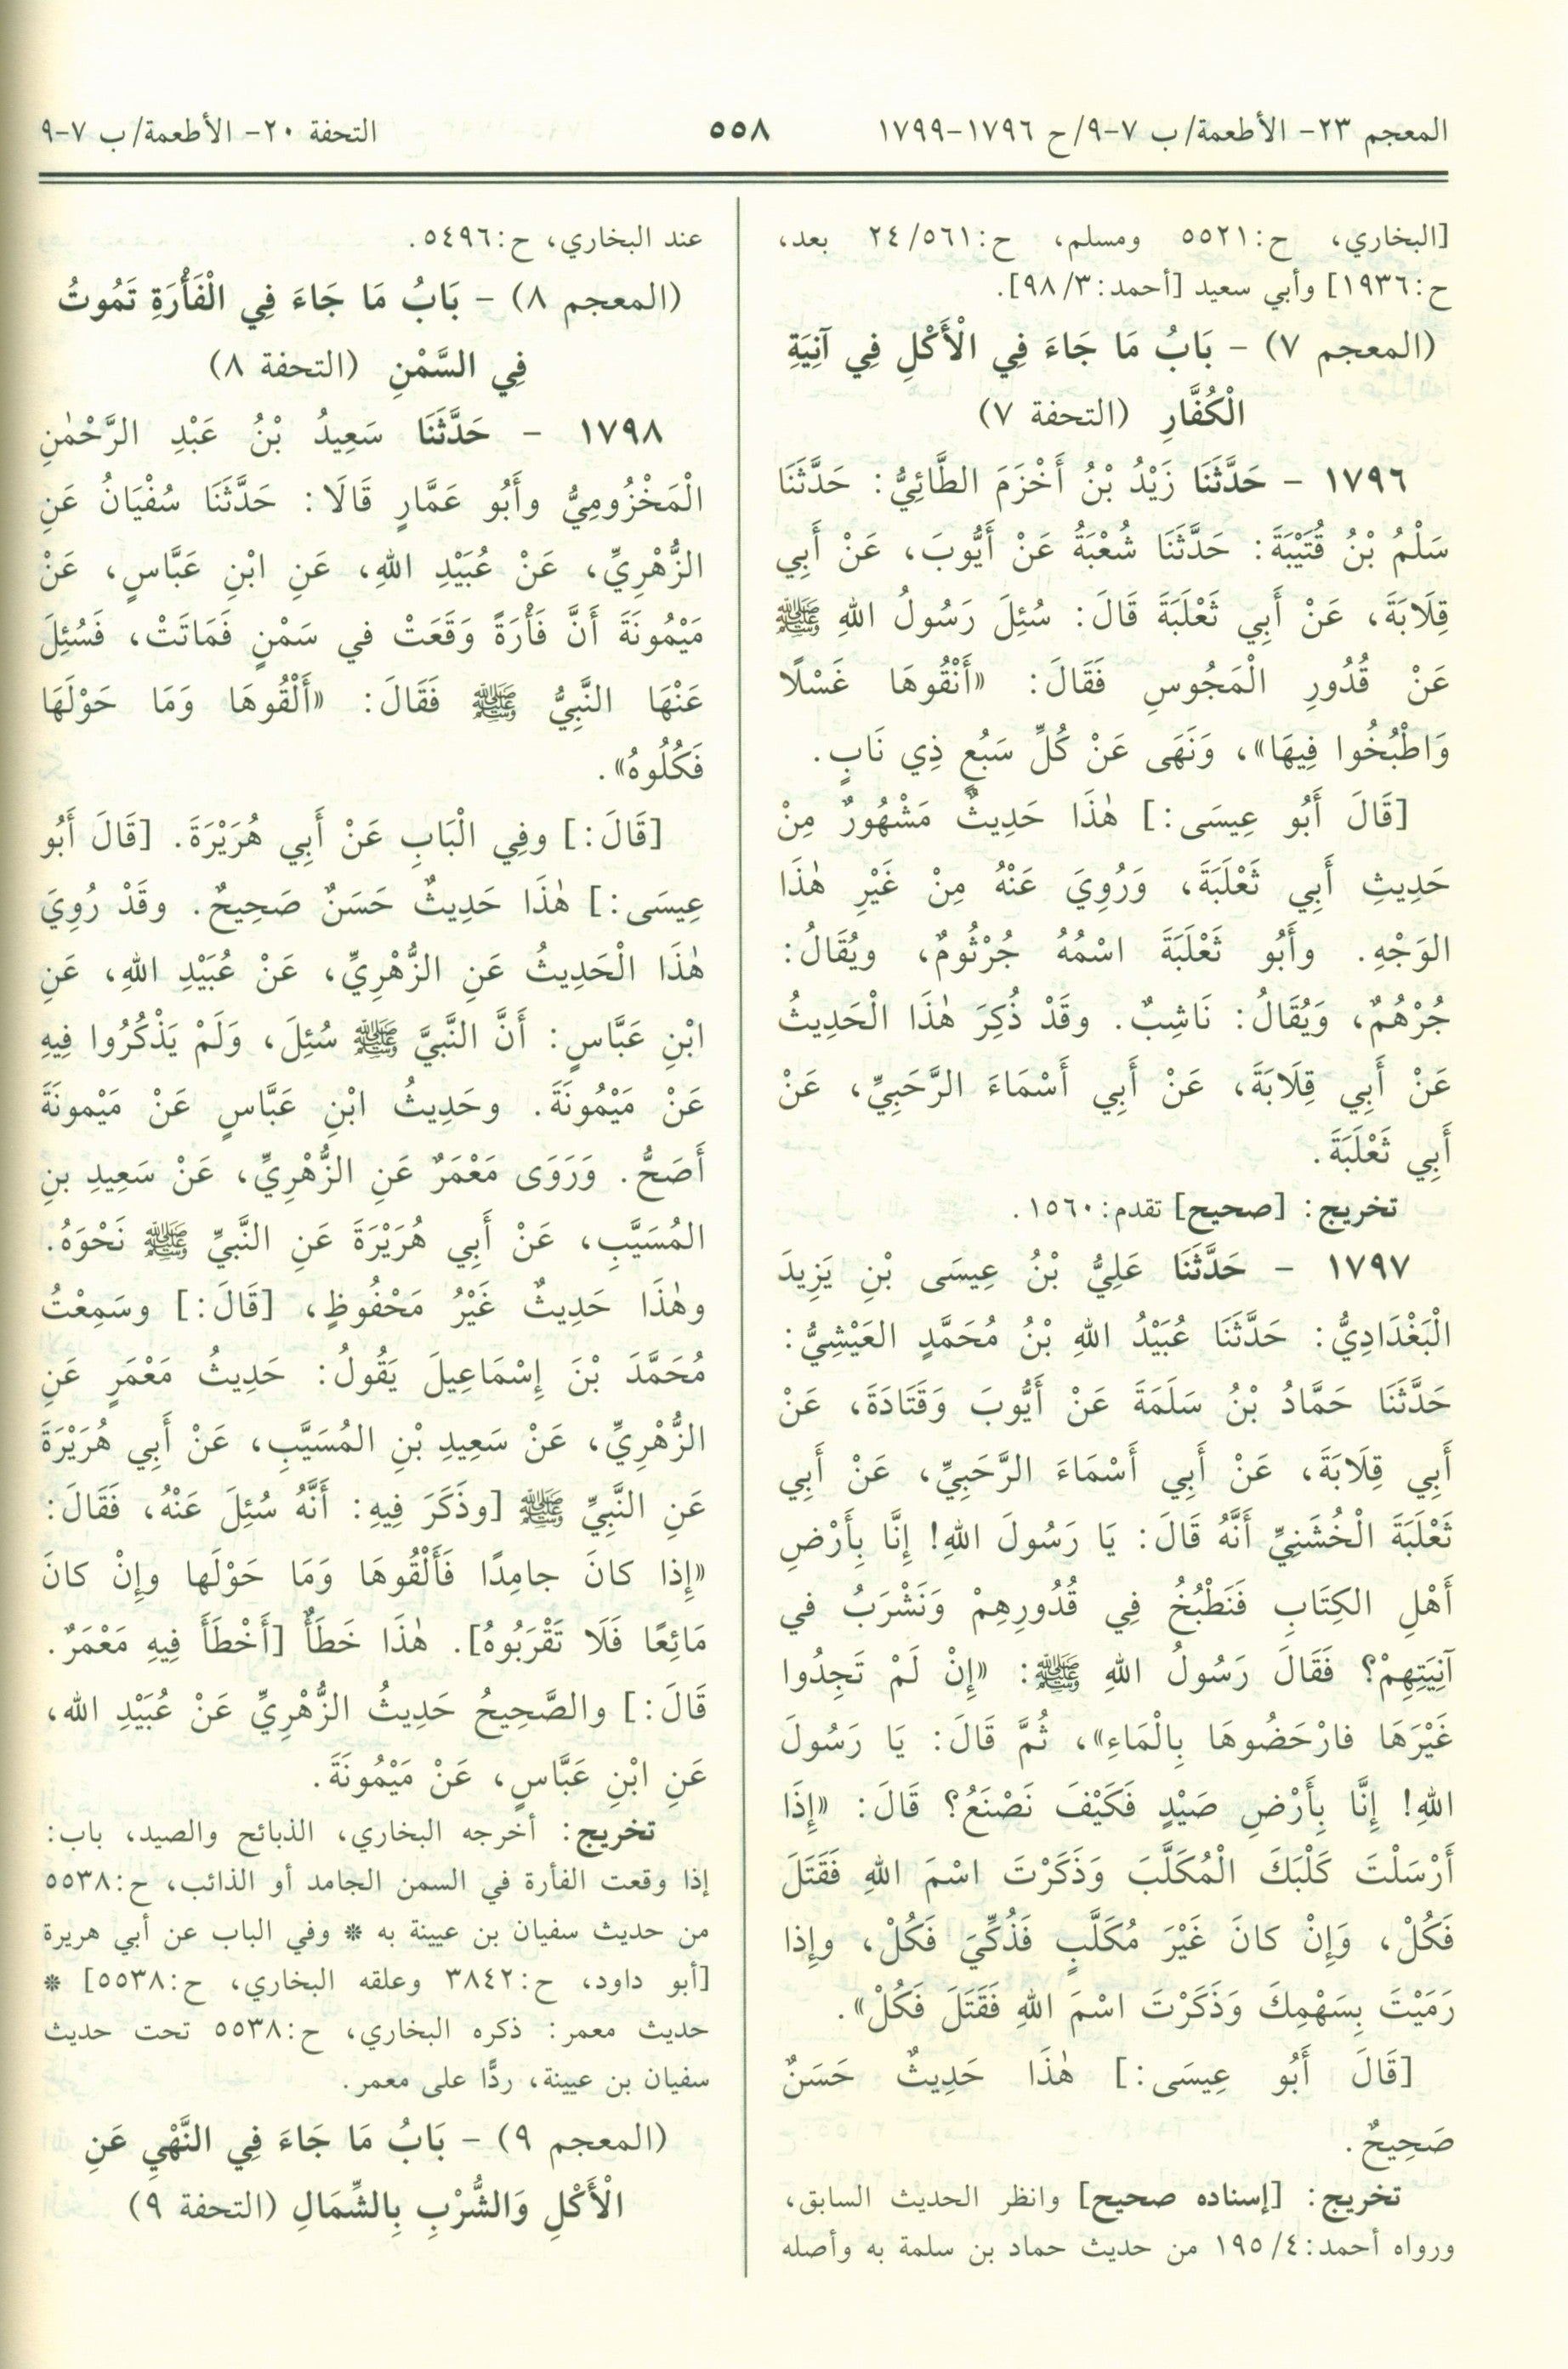 المعجم ٢٣- الأطعمة/ ب ٧-٩/ ح ١٧٩٦-١٧٩٩
٥٥٨
التحفة ٢٠- الأطعمة/ ب ٧-٩
[البخاري، ح:٥٥٢١ ومسلم، ح:٢٤/٥٦١ بعد،
ح:١٩٣٦] وأبي سعيد [أحمد:٩٨/٣].
(المعجم ٧) - بَابُ مَا جَاءَ فِي الْأَكْلِ فِي آنِيَةِ
الْكُفَّارِ (التحفة ٧)
١٧٩٦ - حَدَّثَنَا زَيْدُ بْنُ أَخْزَمَ الطَّائِيُّ: حَدَّثَنَا
سَلْمُ بْنُ قُتَيْبَةَ: حَدَّثَنَا شُعْبَةُ عَنْ أَيُّوبَ، عَنْ أَبِي
قِلَابَةَ، عَنْ أَبِي ثَعْلَبَةَ قَالَ: سُئِلَ رَسُولُ اللهِ ﷺ
عَنْ قُدُورِ الْمَجُوسِ فَقَالَ: «أَنْقُوهَا غَسْلًا
وَاطْبُخُوا فِيهَا»، وَنَهَى عَنْ كُلِّ سَبُعٍ ذِي نَابٍ.
[قَالَ أَبُو عِيسَى:] هٰذَا حَدِيثٌ مَشْهُورٌ مِنْ
حَدِيثِ أَبِي ثَعْلَبَةَ، وَرُوِيَ عَنْهُ مِنْ غَيْرِ هٰذَا
الوَجْهِ. وأَبُو ثَعْلَبَةَ اسْمُهُ جُرْثُومٌ، ويُقَالُ:
جُرْهُمٌ، وَيُقَالُ: نَاشِبٌ. وقَدْ ذُكِرَ هٰذَا الْحَدِيثُ
عَنْ أَبِي قِلَابَةَ، عَنْ أَبِي أَسْمَاءَ الرَّحَبِيِّ، عَنْ
أَبِي ثَعْلَبَةَ.
تخريج: [صحيح] تقدم:١٥٦٠.
١٧٩٧ - حَدَّثَنَا عَلِيُّ بْنُ عِيسَى بْنِ يَزِيدَ
الْبَغْدَادِيُّ: حَدَّثَنَا عُبَيْدُ اللهِ بْنُ مُحَمَّدٍ العَيْشِيُّ:
حَدَّثَنَا حَمَّادُ بْنُ سَلَمَةَ عَنْ أَيُّوبَ وَقَتَادَةَ، عَنْ
أَبِي قِلَابَةَ، عَنْ أَبِي أَسْمَاءَ الرَّحَبِيِّ، عَنْ أَبِي
ثَعْلَبَةَ الْخُشَنِيِّ أَنَّهُ قَالَ: يَا رَسُولَ اللهِ! إِنَّا بِأَرْضِ
أَهْلِ الكِتَابِ فَنَطْبُخُ فِي قُدُورِهِمْ وَنَشْرَبُ في
آنِيَتِهِمْ؟ فَقَالَ رَسُولُ اللهِ ﷺ: «إِنْ لَمْ تَجِدُوا
غَيْرَهَا فارْحَضُوهَا بِالْمَاءِ»، ثُمَّ قَالَ: يَا رَسُولَ
اللهِ! إِنَّا بِأَرْضِ صَيْدٍ فَكَيْفَ نَصْنَعُ؟ قَالَ: «إِذَا
أَرْسَلْتَ كَلْبَكَ الْمُكَلَّبَ وَذَكَرْتَ اسْمَ اللهِ فَقَتَلَ
فَكُلْ، وَإِنْ كانَ غَيْرَ مُكَلَّبٍ فَذُكِّيَ فَكُلْ، وإِذا
رَمَيْتَ بِسَهْمِكَ وَذَكَرْتَ اسْمَ اللهِ فَقَتَلَ فَكُلْ».
[قَالَ أَبُو عِيسَى:] هٰذَا حَدِيثٌ حَسَنٌ
صَحِيحٌ.
تخريج: [إسناده صحيح] وانظر الحديث السابق،
ورواه أحمد:١٩٥/٤ من حديث حماد بن سلمة به وأصله
عند البخاري، ح:٥٤٩٦.
(المعجم ٨) - بَابُ مَا جَاءَ فِي الْفَأْرَةِ تَمُوتُ
فِي السَّمْنِ (التحفة ٨)
١٧٩٨ - حَدَّثَنَا سَعِيدُ بْنُ عَبْدِ الرَّحْمٰنِ
الْمَخْزُومِيُّ وأَبُو عَمَّارٍ قَالَا: حَدَّثَنَا سُفْيَانُ عَنِ
الزُّهْرِيِّ، عَنْ عُبَيْدِ اللهِ، عَنِ ابْنِ عَبَّاسٍ، عَنْ
مَيْمُونَةَ أَنَّ فَأْرَةً وَقَعَتْ في سَمْنٍ فَمَاتَتْ، فَسُئِلَ
عَنْهَا النَّبِيُّ ﷺ فَقَالَ: «أَلْقُوهَا وَمَا حَوْلَهَا
فَكُلُوهُ».
[قَالَ:] وفِي الْبَابِ عَنْ أَبِي هُرَيْرَةَ. [قَالَ أَبُو
عِيسَى:] هٰذَا حَدِيثٌ حَسَنٌ صَحِيحٌ. وقَدْ رُوِيَ
هٰذَا الْحَدِيثُ عَنِ الزُّهْرِيِّ، عَنْ عُبَيْدِ اللهِ، عَنِ
ابْنِ عَبَّاسٍ: أَنَّ النَّبِيَّ ﷺ سُئِلَ، وَلَمْ يَذْكُرُوا فِيهِ
عَنْ مَيْمُونَةَ. وحَدِيثُ ابْنِ عَبَّاسٍ عَنْ مَيْمونَةَ
أَصَحُّ. وَرَوَى مَعْمَرٌ عَنِ الزُّهْرِيِّ، عَنْ سَعِيدِ بنِ
المُسَيَّبِ، عَنْ أَبِي هُرَيْرَةَ عَنِ النَّبيِّ ﷺ نَحْوَهُ.
وهٰذَا حَدِيثٌ غَيْرُ مَحْفُوظٍ، [قَالَ:] وسَمِعْتُ
مُحَمَّدَ بْنَ إِسْمَاعِيلَ يَقُولُ: حَدِيثُ مَعْمَرٍ عَنِ
الزُّهْرِيِّ، عَنْ سَعِيدِ بْنِ المُسَيَّبِ، عَنْ أَبِي هُرَيْرَةَ
عَنِ النَّبِيِّ ﷺ [وذَكَرَ فِيهِ: أَنَّهُ سُئِلَ عَنْهُ، فَقَالَ:
«إِذا كانَ جامِدًا فَأَلْقُوهَا وَمَا حَوْلَها وإِنْ كانَ
مَائِعًا فَلَا تَقْرَبُوهُ]. هٰذَا خَطَأٌ [أَخْطَأَ فِيهِ مَعْمَرٌ.
قَالَ:] والصَّحِيحُ حَدِيثُ الزُّهْرِيِّ عَنْ عُبَيْدِ الله،
عَنِ ابْنِ عَبَّاسٍ، عَنْ مَيْمُونَةَ.
تخريج: أخرجه البخاري، الذبائح والصيد، باب:
إذا وقعت الفأرة في السمن الجامد أو الذائب، ح:٥٥٣٨
من حديث سفيان بن عيينة به * وفي الباب عن أبي هريرة
[أبو داود، ح:٣٨٤٢ وعلقه البخاري، ح:٥٥٣٨] *
حديث معمر: ذكره البخاري، ح:٥٥٣٨ تحت حديث
سفيان بن عيينة، ردًّا على معمر.
(المعجم ٩) - بَابُ مَا جَاءَ فِي النَّهْيِ عَنِ
الْأَكْلِ وَالشُّرْبِ بِالشِّمَالِ (التحفة ٩)